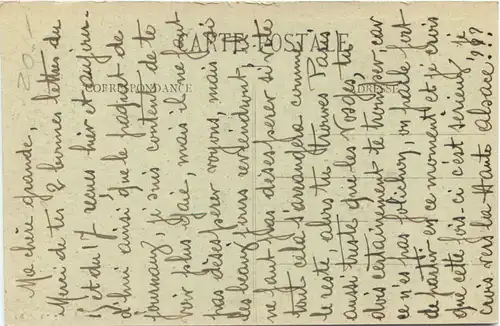 CARTE POSTALE
CORRESPONDANCE
ADRESSE
20.-
Ma chère grande,
Merci de tes 2 bonnes lettres du
et du 17 reçues hier et aujour-
d'hui ainsi que le paquet de
journaux, je suis content de te
voir plus gaie, mais il ne faut
pas désespérer voyons, mais si
les beaux jours reviendront,
ne faut pas désespérer si vite
tout cela s'arrangera comme
le reste alors tu trouves Paris
aussi triste que les Vosges, tu
dois certainement te tromper car
ce n'est pas folichon, on parle fort
de partir en ce moment et je crois
que cette fois ci c'est sérieux, je
crois vers la Haute Alsace!!??